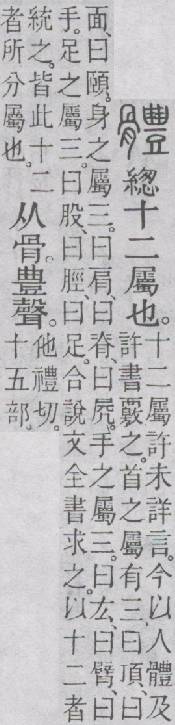 體總十二屬也。
十二屬許未詳言。今以人體及
許書覈之。首之屬有三。曰頂、曰
面、曰頤。身之屬三。曰肩、曰脊、曰尻。手之屬三。曰厷、曰臂、曰
手。足之屬三。曰股、曰脛、曰足。合說文全書求之。以十二者
統之。皆此十二
者所分屬也。
从骨。豊聲。
他禮切。
十五部。